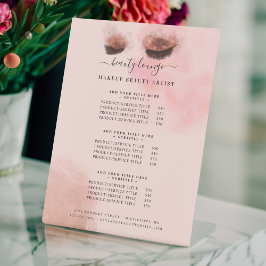 beauty lounge
MAKEUP BEAUTY ARTIST
ADD YOUR TITLE HERE
- SUBTITLE -
PRODUCT/SERVICE TITLE $50
PRODUCT/SERVICE TITLE $50
PRODUCT/SERVICE TITLE $50
PRODUCT/SERVICE TITLE $50
ADD YOUR TITLE HERE
- SUBTITLE -
PRODUCT/SERVICE TITLE $50
PRODUCT/SERVICE TITLE $50
PRODUCT/SERVICE TITLE $50
PRODUCT/SERVICE TITLE $50
ADD YOUR TITLE HERE
- SUBTITLE -
PRODUCT/SERVICE TITLE $50
PRODUCT/SERVICE TITLE $50
PRODUCT/SERVICE TITLE $50
PRODUCT/SERVICE TITLE $50